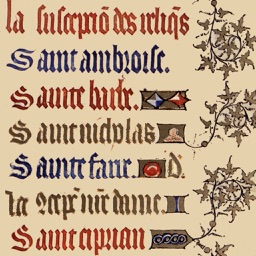 la suscepciõ des reliq̃s
Saint ambroise.
Sainte barbe.
Saint nicholas
Sainte fare. D.
la 2cep̃ nr̃e dame.
Saint ciprian